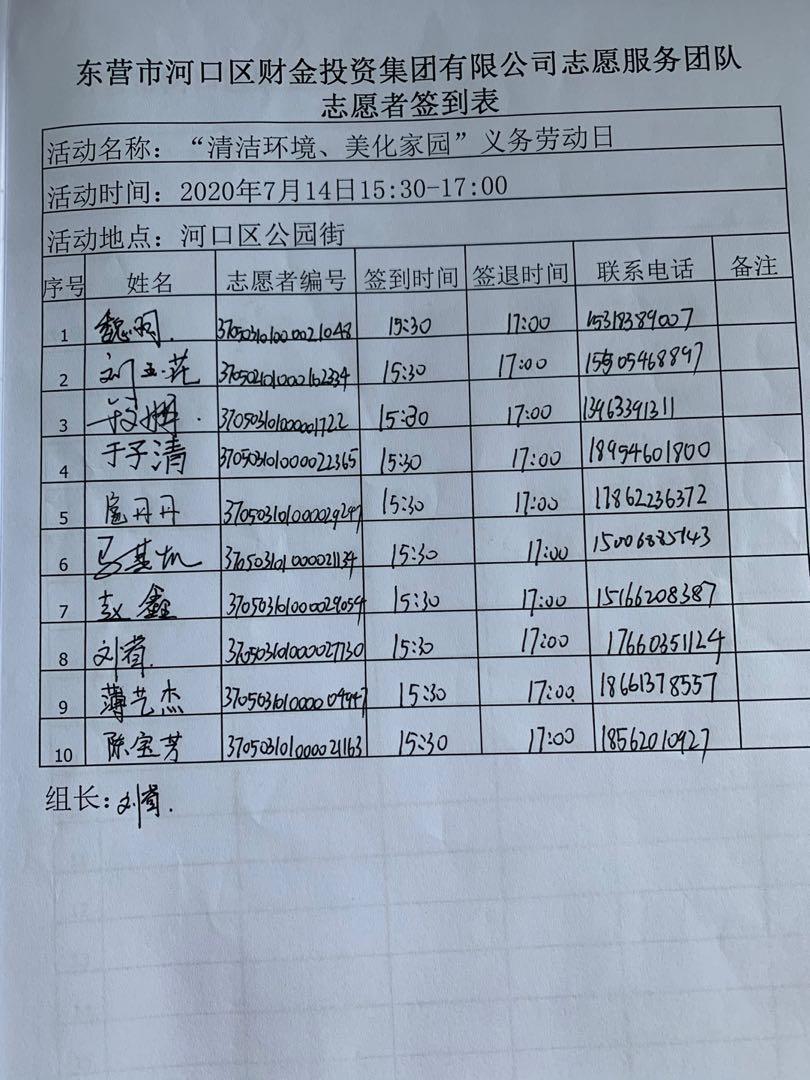 东营市河口区财金投资集团有限公司志愿服务团队
志愿者签到表
活动名称：“清洁环境、美化家园”义务劳动日
活动时间：2020年7月14日15:30-17:00
活动地点：河口区公园街
序号 姓名 志愿者编号 签到时间 签退时间 联系电话 备注
1 魏羽. 370503101000021048 15:30 17:00 15318389007
2 刘玉花 370502101000162334 15:30 17:00 15505468897
3 370503101000001722 15:30 17:00 13963391311
4 于子清 370503101000022365 15:30 17:00 18954601800
5 扈丹丹 370503101000029247 15:30 17:00 17862236372
6 马其帆 370503101000021134 15:30 17:00 15006885143
7 赵鑫 370503101000029054 15:30 17:00 15166208387
8 刘 370503101000027730 15:30 17:00 17660351124
9 薄艺杰 370503101000004947 15:30 17:00 18661378557
10 陈宝芳 370503101000021163 15:30 17:00 18562010927
组长：刘